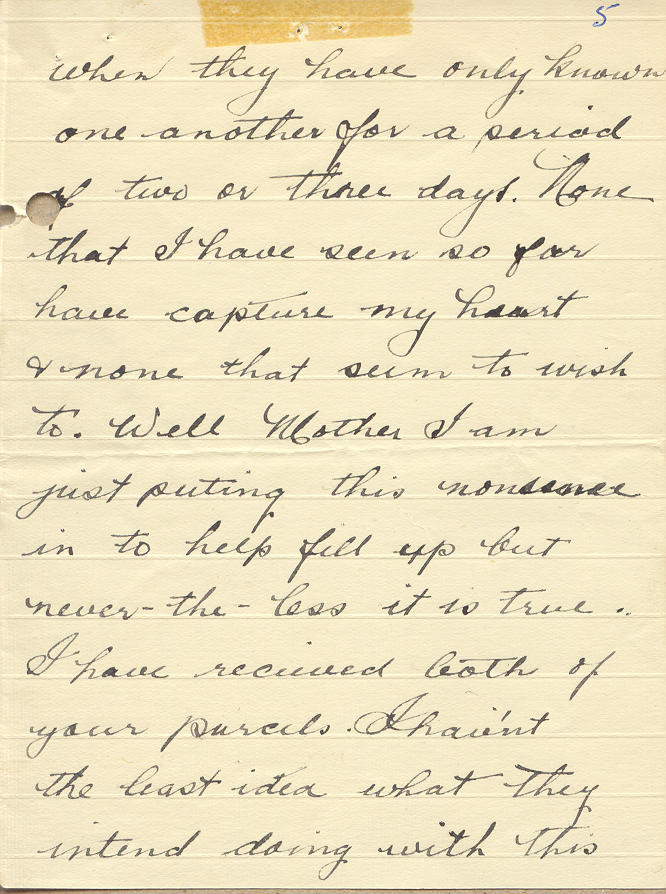 5
when they have only known
one another for a period
of two or three days. None
that I have seen so far
have capture my heart
& none that seem to wish
to. Well Mother I am
just puting this nonsence
in to help fill up but
never-the-less it is true..
I have recieved both of
your parcels. I hav'nt
the least idea what they
intend doing with this